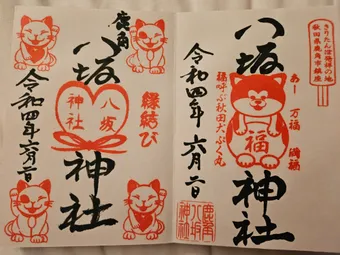 きりたんぽ発祥の地
秋田県鹿角市鎮座
八坂神社
あー 万福 満福
福
福呼ぶ秋田犬ぶく丸
令和四年六月二日
鹿角
八坂
神社
鹿角
八坂神社
縁結び
八坂
神社
令和四年六月二日